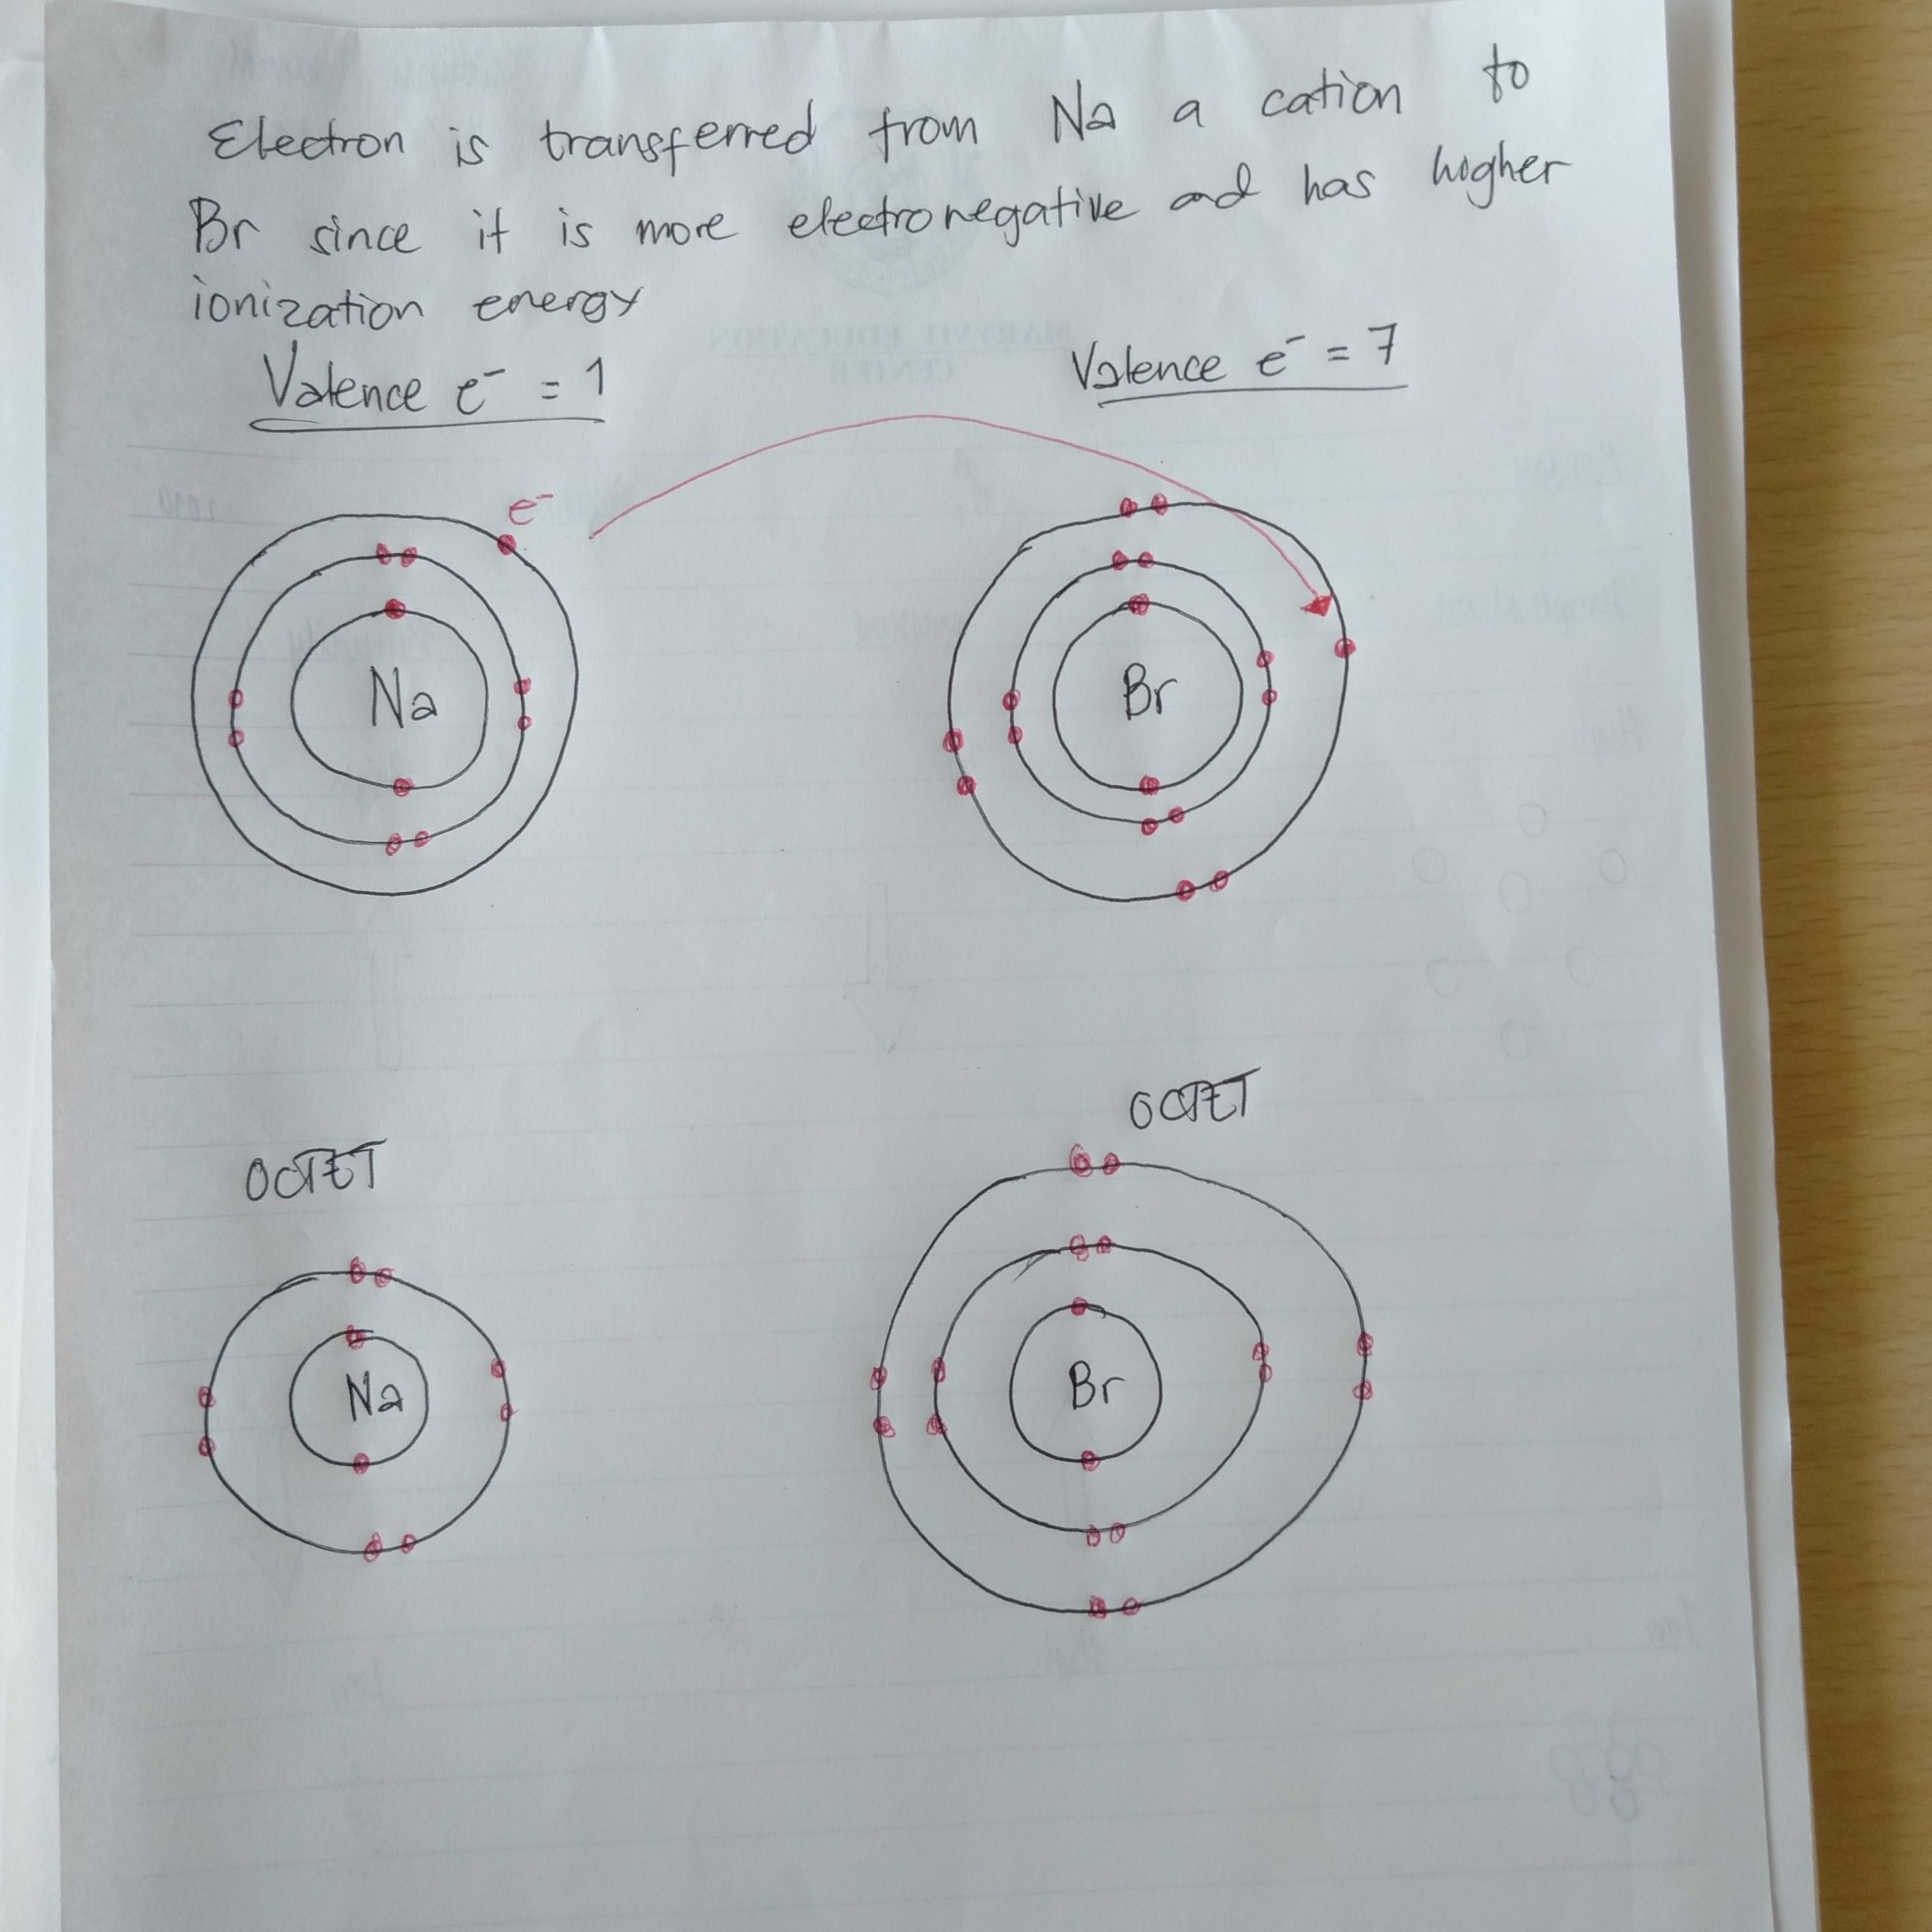 Electron is transferred from Na a cation to
Br since it is more electronegative and has higher
ionization energy
Valence e⁻ = 1
Valence e⁻ = 7
e⁻
Na
Br
OCTET
OCTET
Na
Br
MARYVIL EDUCATION
CENTER